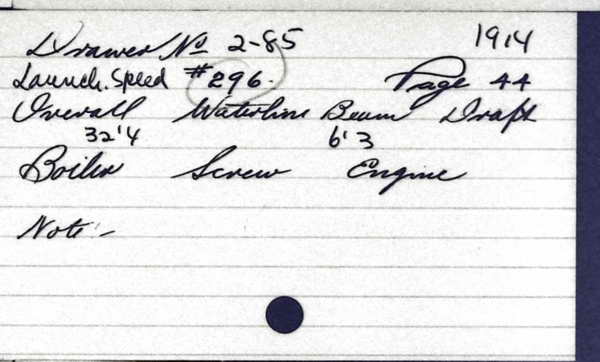 Drawer No 2-85 1914
Launch. Speed #296. Page 44
Overall Waterline Beam Draft
32'4 6'3
Boiler Screw Engine
Note:-